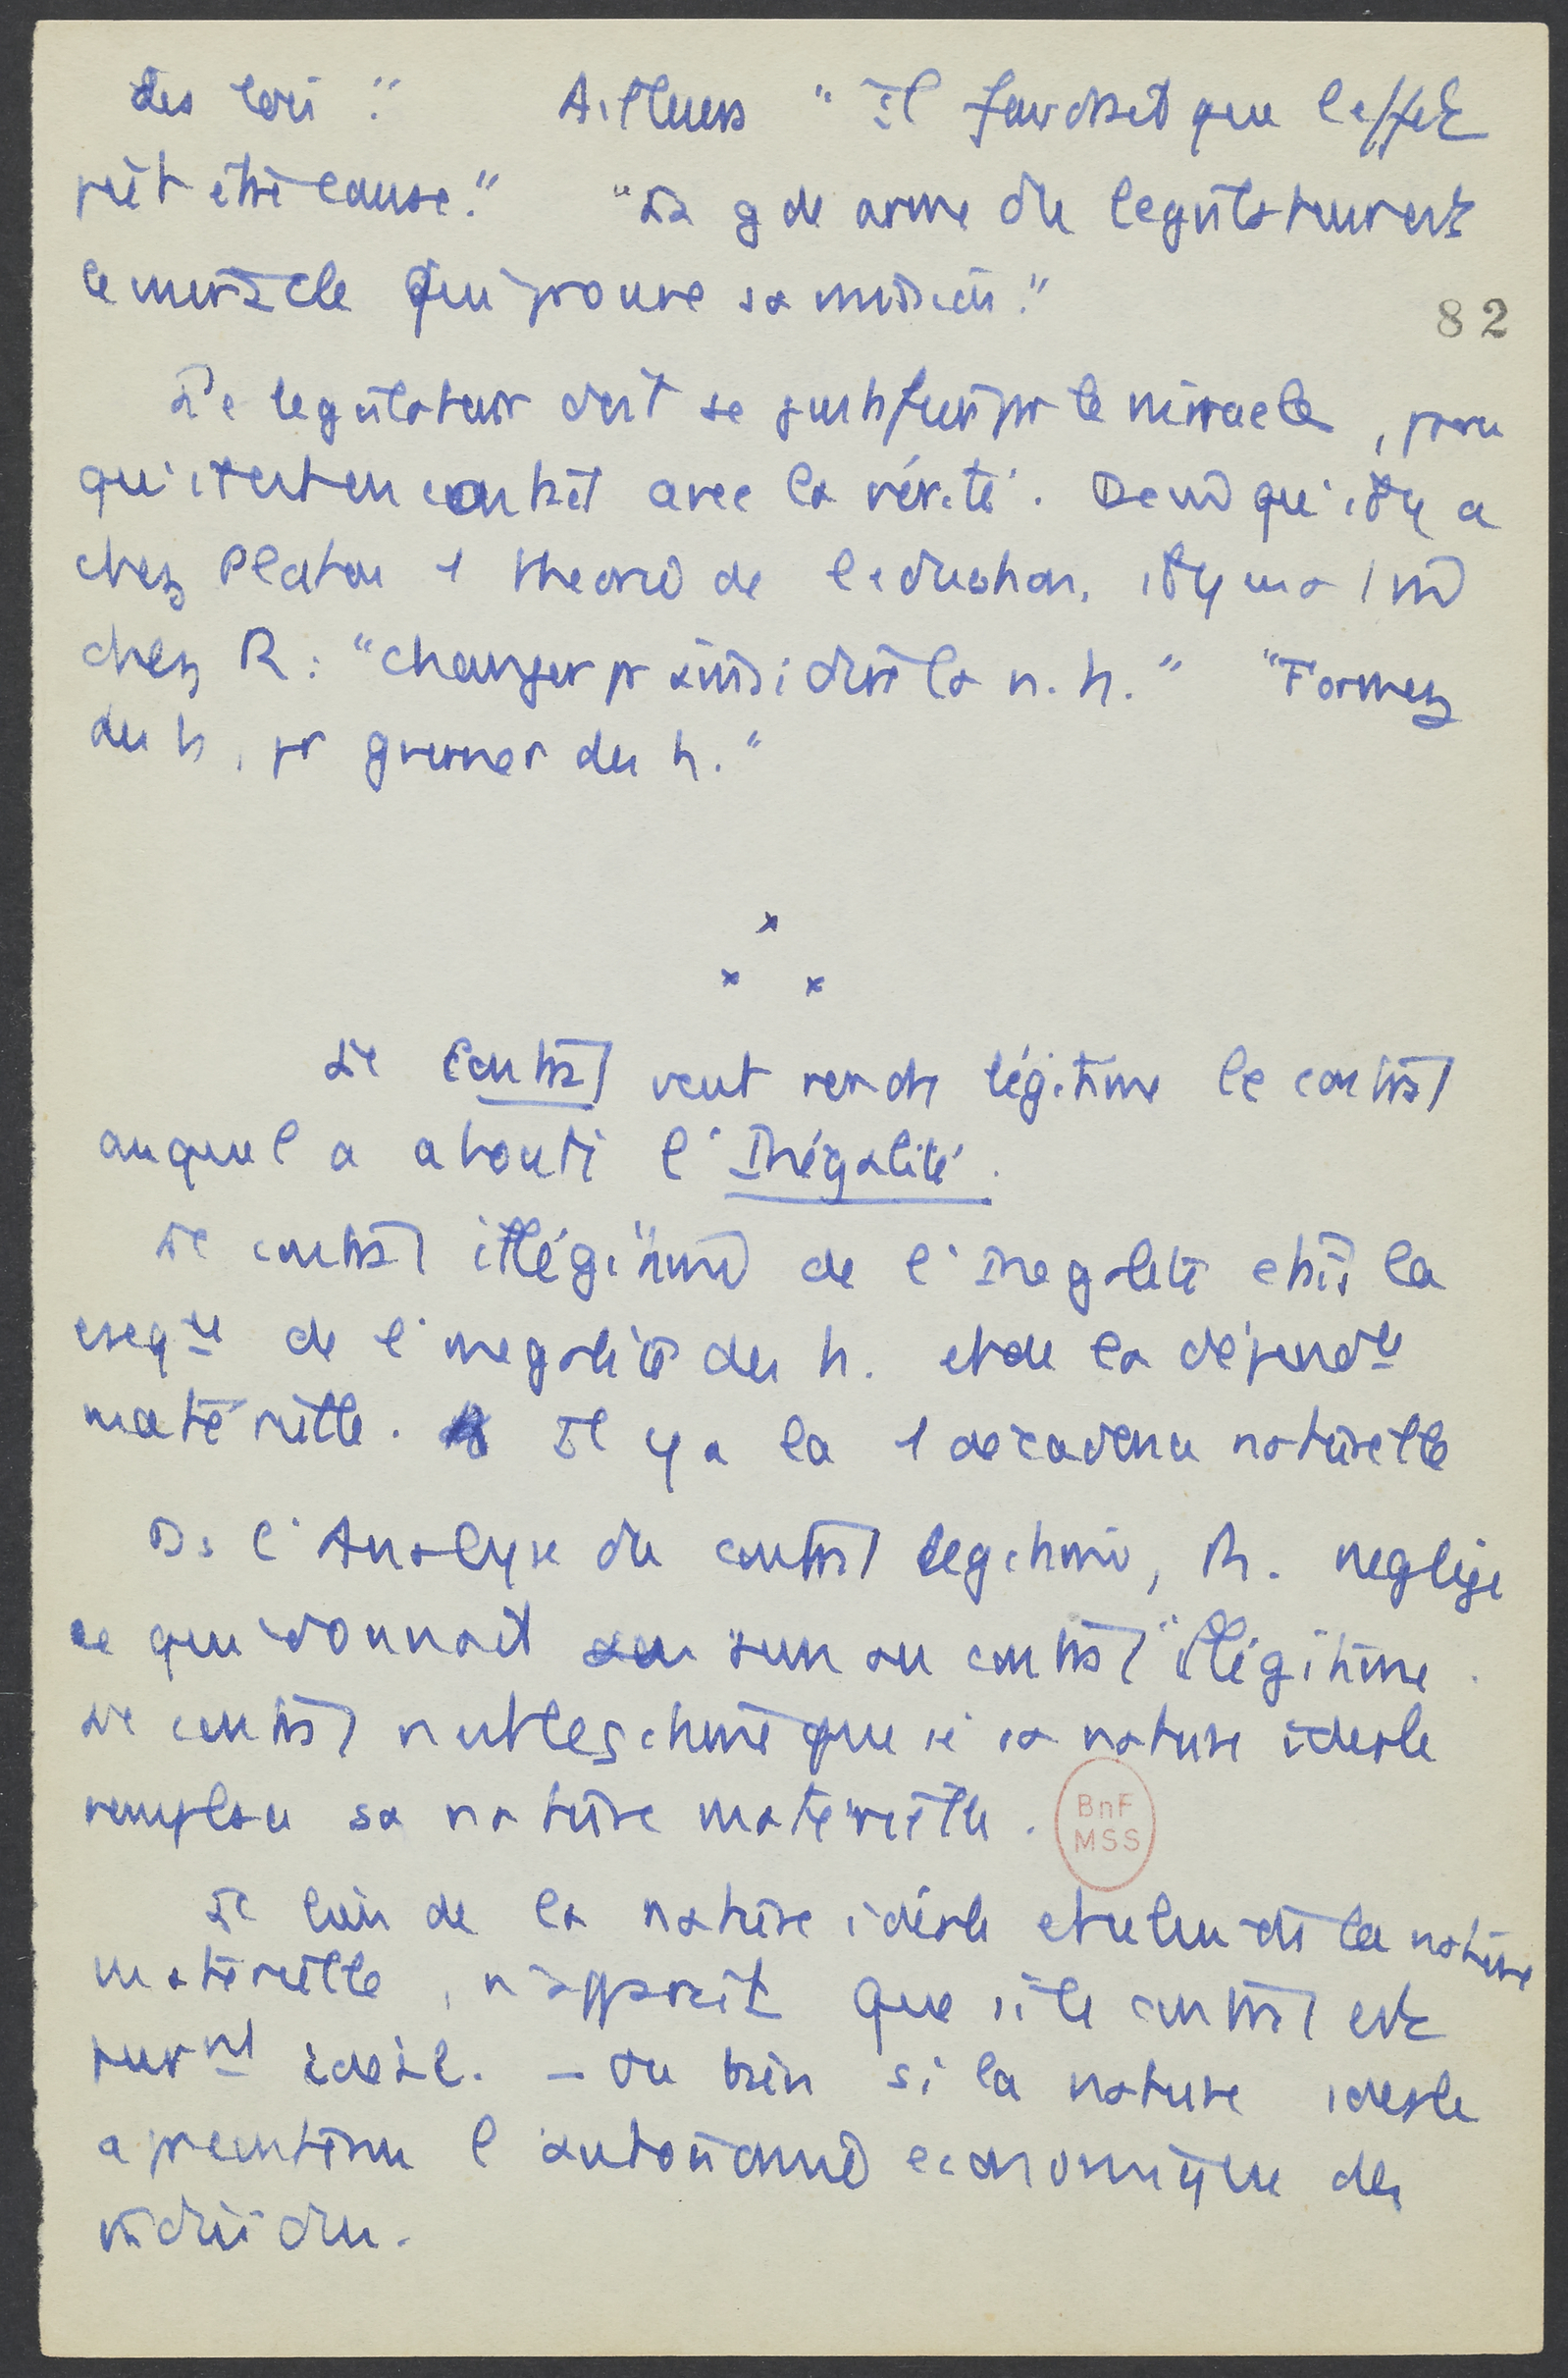 des lois." Ailleurs "Il faudrait que l'effet
pût être cause." "La gde arme du législateur est
le miracle qui prouve sa mission."
82
Le législateur doit se justifier pr le miracle, parce
qu'il est en contrat avec la vérité. De m̂ qu'il y a
chez Platon 1 théorie de l'éducation, il y en a 1 m̂
chez R : "changer pr ainsi dire la n. h." "Formez
des h, pr gouverner des h."
x
x x
Le Contrat veut rendre légitime le contrat
auquel a abouti l'Inégalité.
Le contrat illégitime de l'Inégalité était la
cséqce de l'inégalité des h. et de la dépendce
matérielle. Il y a là 1 décadence naturelle
Ds l'Analyse du contrat légitime, R. néglige
ce qui donnait son sens au contrat illégitime.
Le contrat n'est légitime que si sa nature idéale
remplace sa nature matérielle.
Le lien de la nature idéale et celui de la nature
matérielle, n'apparaît que si le contrat est
purnt idéal. - Ou bien si la nature idéale
a pr contenu l'autonomie économique des
individus.
BnF
MSS